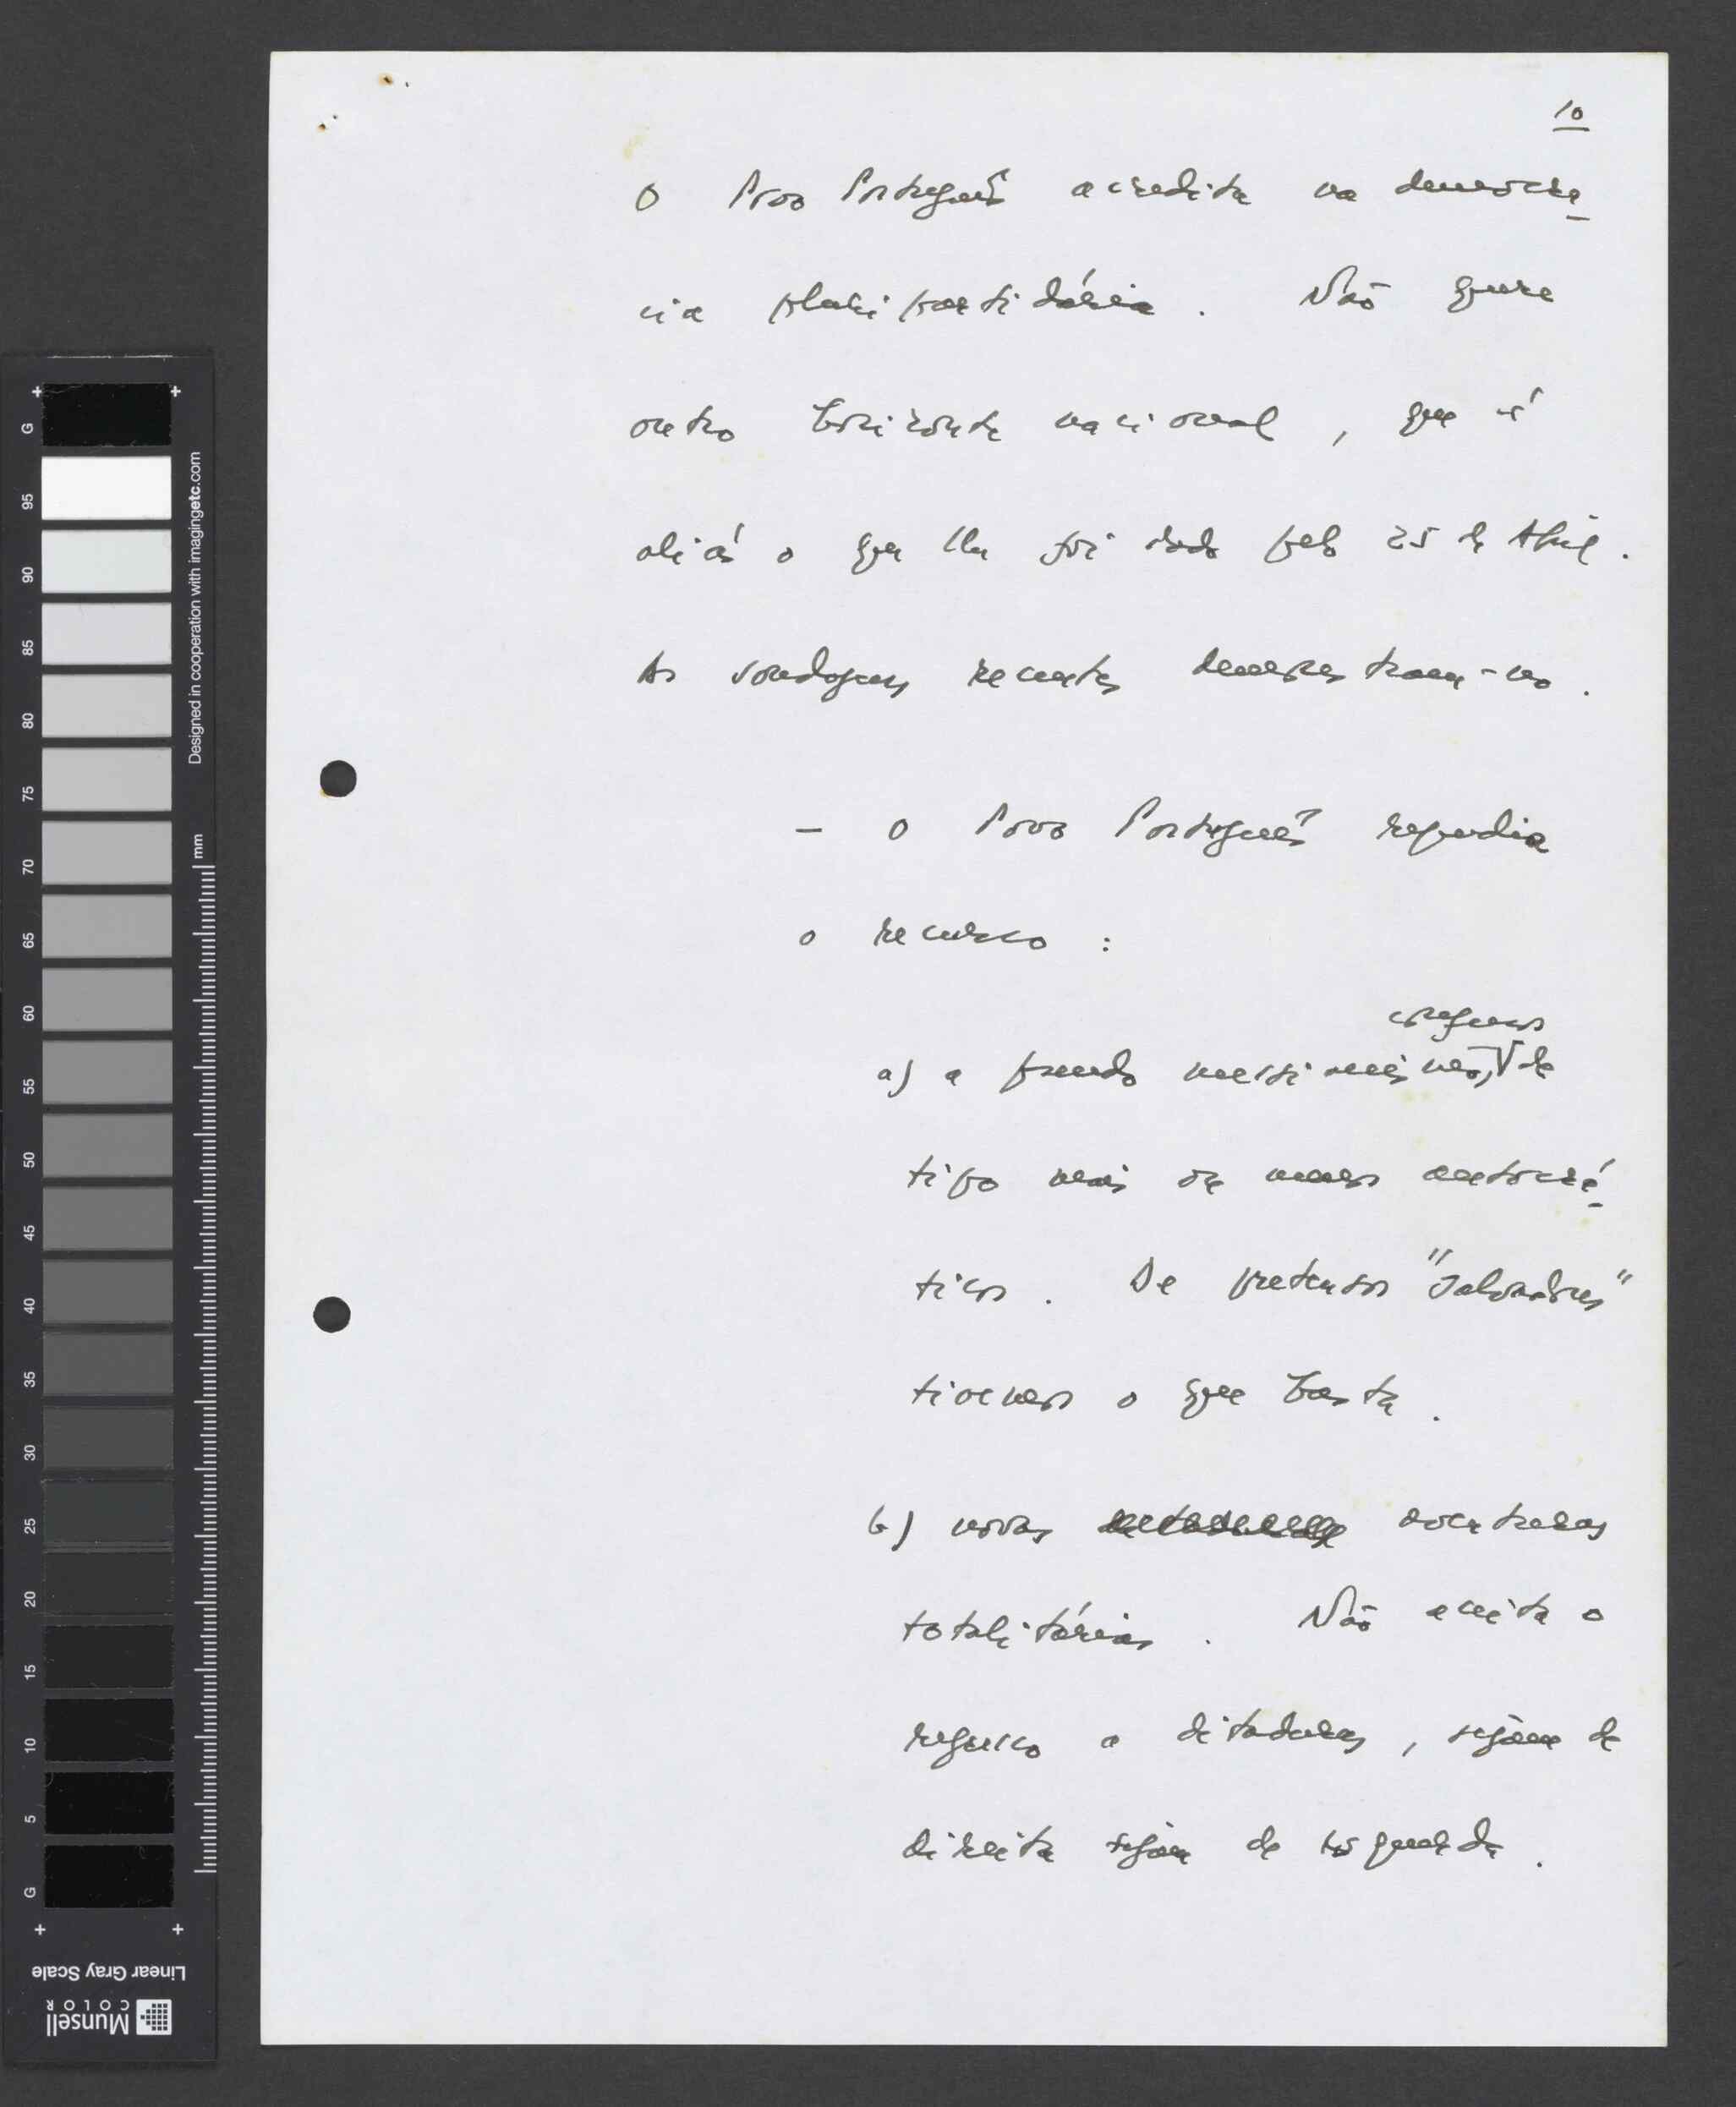 10
O Povo Português acredita na democra
cia pluripartidária. Não quere
outro horizonte nacional, que é
aliás o que lhe foi dado pelo 25 de Abril.
As sondagens recentes demonstram-no.
– O Povo Português repudia
o recurso:
a) a pseudo messianismos, de
tipo mais ou menos autocrá
ticos. De pretensos "Salvadores"
tivemos o que basta.
b) novas aventuras
totalitárias. Não aceita o
regresso a ditaduras, sejam de
direita sejam de esquerda.
G 95 90 85 80 75 70 65 60 55 50 45 40 35 30 25 20 15 10 5 G
Designed in cooperation with imagingetc.com
mm
Linear Gray Scale
Munsell
COLOR